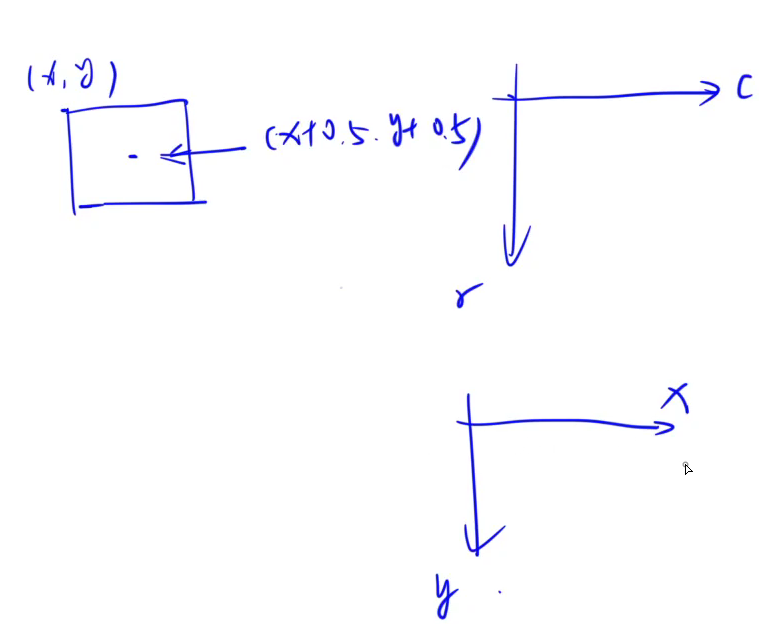 (x, y)
C
(x+0.5, y+0.5)
r
x
y